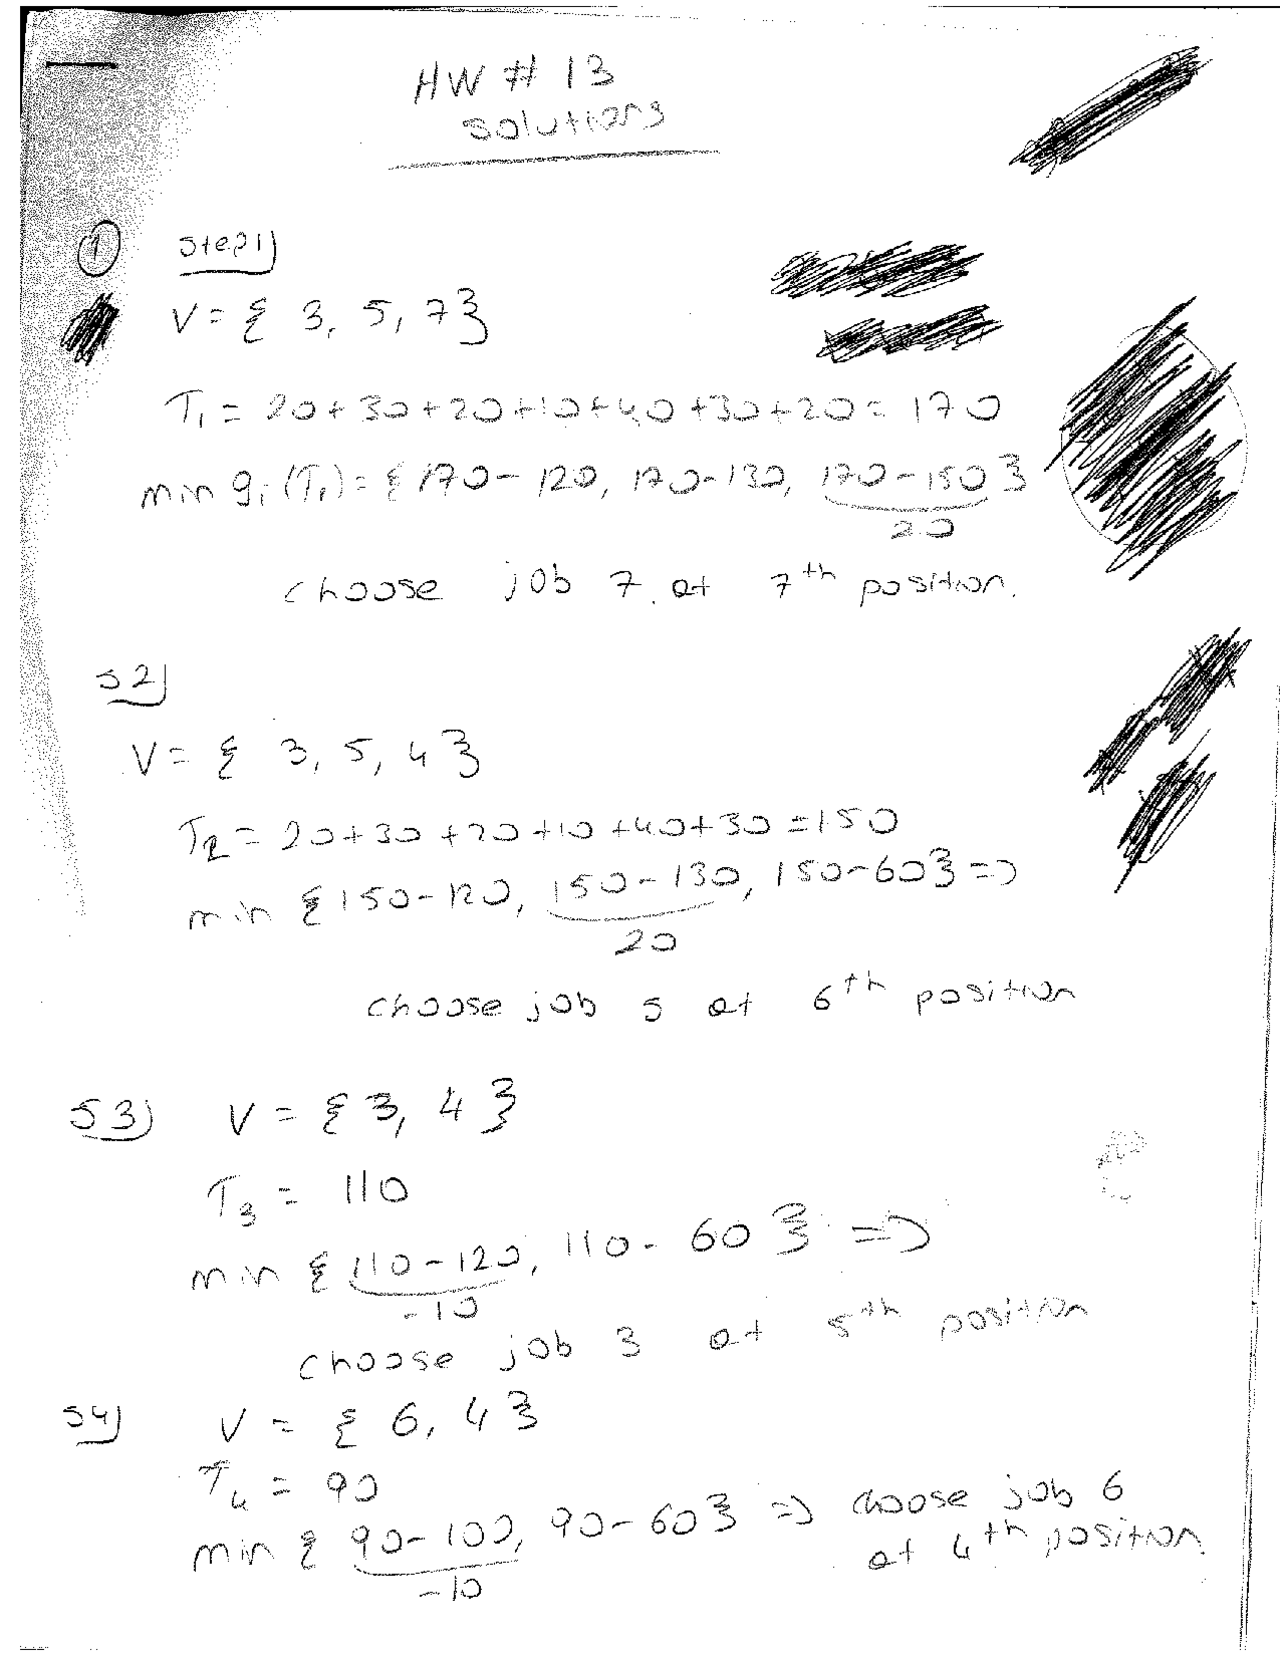 HW # 13
solutions
1 step1)
V = { 3, 5, 7 }
T₁ = 20+30+20+10+40+30+20 = 170
min gᵢ(T₁) = { 170-120, 170-130, 170-150 }
20
choose job 7. at 7th position.
S2)
V = { 3, 5, 4 }
T₂ = 20+30+20+10+40+30 = 150
min { 150-120, 150-130, 150-60 } =>
20
choose job 5 at 6th position
S3) V = { 3, 4 }
T₃ = 110
min { 110-120, 110-60 } =>
-10
choose job 3 at 5th position
S4) V = { 6, 4 }
T₄ = 90
min { 90-100, 90-60 } => choose job 6
at 4th position.
-10